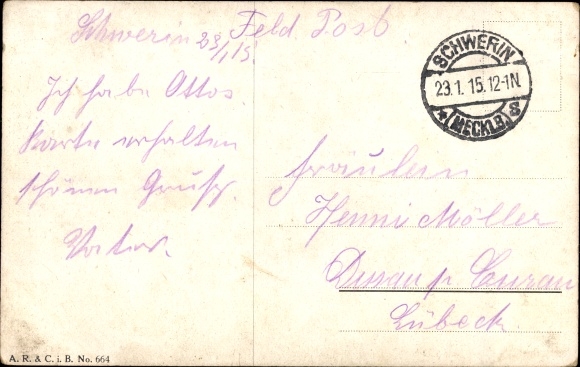 Schwerin 23/1 15
Feld Post
SCHWERIN
23.1.15.12-1N.
* (MECKLB.) S
Ich habe Ottos
Karte erhalten
schönen Gruß
Vater.
Fräulein
Henni Möller
Curau
Lübeck
A. R. & C. i. B. No. 664